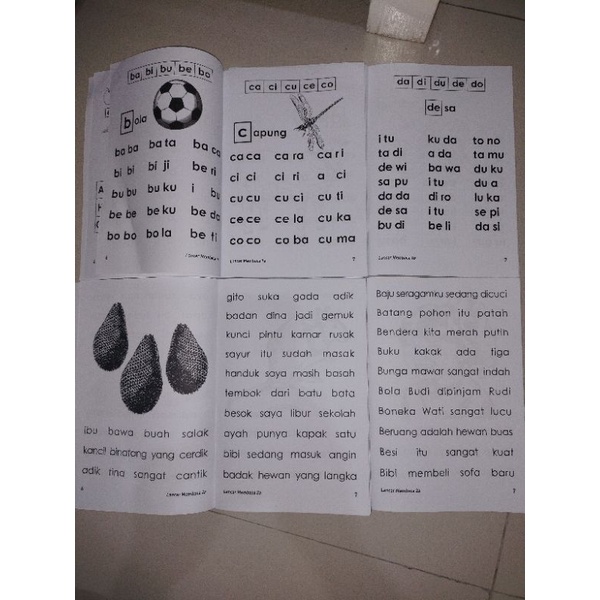 ba bi bu be bo
bola
ba ba ba ta ba ca
bi bi bi ji be ri
bu bu bu ku i bu
be be be ku be da
bo bo bo la be ti
Lancar Membaca
ca ci cu ce co
capung
ca ca ca ra ca ri
ci ci ci ri a ci
cu cu cu ci cu ti
ce ce ce la cu ka
co co co ba cu ma
Lancar Membaca
7
da di du de do
de sa
i tu ku da to no
ta di a da ta mu
de wi ba wa du ku
sa pu i tu du a
da da di ro lu ka
de sa i tu se pi
bu di be li da si
Lancar Membaca
7
ibu bawa buah salak
kancil binatang yang cerdik
adik rina sangat cantik
Lancar Membaca
gito suka gada adik
badan dina jadi gemuk
kunci pintu kamar rusak
sayur itu sudah masak
handuk saya masih basah
tembok dari batu bata
besok saya libur sekolah
ayah punya kapak satu
bibi sedang masuk angin
badak hewan yang langka
Lancar Membaca
7
Baju seragamku sedang dicuci
Batang pohon itu patah
Bendera kita merah putih
Buku kakak ada tiga
Bunga mawar sangat indah
Bola Budi dipinjam Rudi
Boneka Wati sangat lucu
Beruang adalah hewan buas
Besi itu sangat kuat
Bibi membeli sofa baru
Lancar Membaca
7